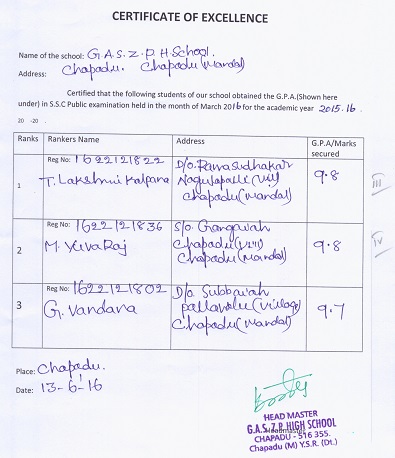 CERTIFICATE OF EXCELLENCE
Name of the school: G.A.S. Z.P.H School.
Address: Chapadu. Chapadu (Mandal)
Certified that the following students of our school obtained the G.P.A.(Shown here
under) in S.S.C Public examination held in the month of March 2016 for the academic year 2015.16.
20 -20 .
Ranks Rankers Name Address G.P.A/Marks secured
Reg No: 1622121822 D/o. Ramasudhakar
1 T. Lakshmi Kalpana Nagulapalle (Vill) 9.8 III
Chapadu (Mandal)
Reg No: 1622121836 S/o. Gangaiah
2 M. Yuva Raj Chapadu (Vill) 9.8 IV
Chapadu (Mandal)
Reg No: 1622121802 D/o Subbaiah
3 G. Vandana Pallavolu (Village) 9.7
Chapadu (Mandal)
Place: Chapadu.
Date: 13-6-16
HEAD MASTER
G.A.S. Z.P. HIGH SCHOOL
Headmaster
CHAPADU - 516 355.
Chapadu (M) Y.S.R. (Dt.)